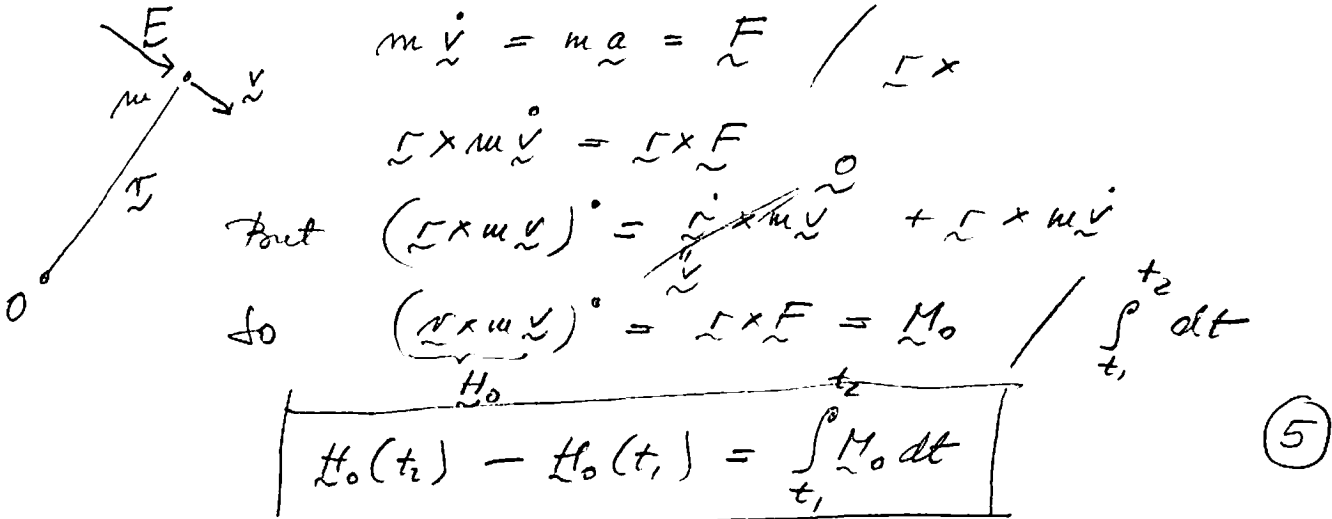 F
m v̇ = m a = F / r ×
m
v
r × m v̇ = r × F
r
0
But (r × m v)˙ = ṙ × m v + r × m v̇
v
0
So (r × m v)˙ = r × F = M₀ / ∫ t₁ t₂ dt
H₀
H₀(t₂) − H₀(t₁) = ∫ t₁ t₂ M₀ dt
5